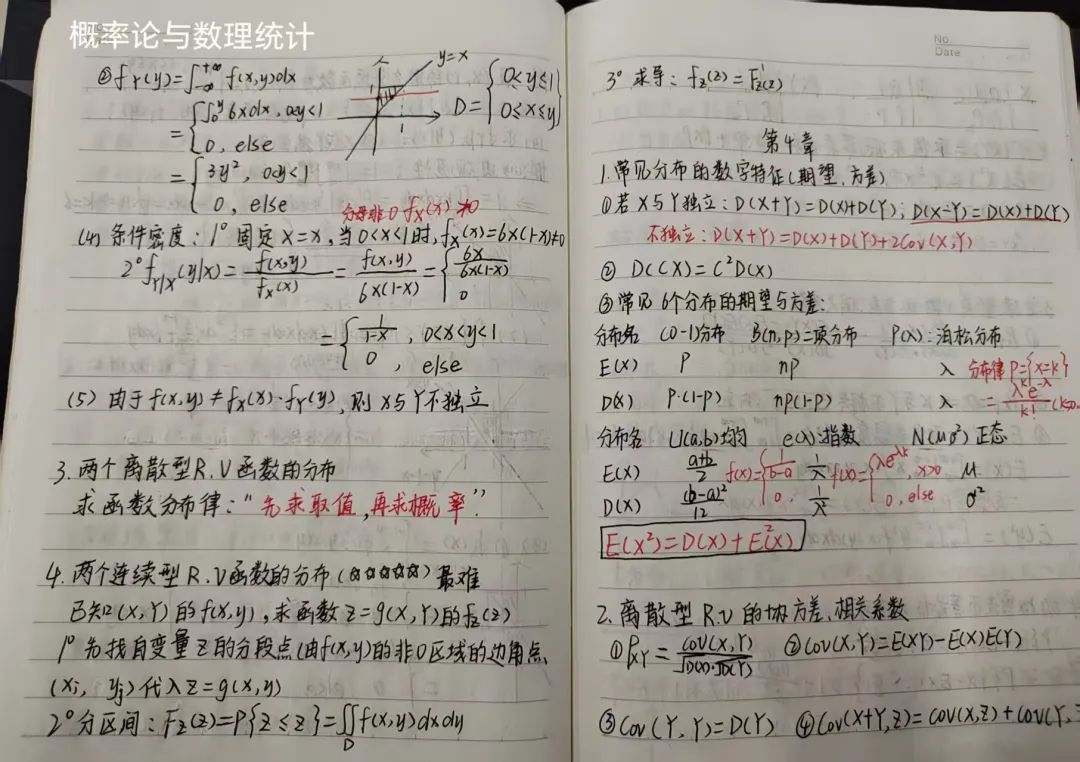 概率论与数理统计
② fY(y)=∫_{-∞}^{+∞} f(x,y)dx
y=x
={∫_0^y 6xdx, 0<y<1
0, else
D={0≤y≤1
0≤x≤y}
={3y², 0<y<1
0, else
分母非0 fx(x)≠0
(4) 条件密度: 1° 固定X=x, 当0<x<1时, fx(x)=6x(1-x)≠0
2° fY|X(y|x)=f(x,y)/fx(x)=f(x,y)/6x(1-x)={6x/6x(1-x)
0
={1/1-x, 0<x<y<1
0, else
(5) 由于f(x,y)≠fx(x)·fY(y), 则X与Y不独立
3. 两个离散型R.V函数的分布
求函数分布律:“先求取值,再求概率”.
4. 两个连续型R.V函数的分布(☆☆☆☆☆)最难
已知(X,Y)的f(x,y), 求函数Z=g(X,Y)的fz(z)
1° 先找自变量Z的分段点(由f(x,y)的非0区域的边角点
(xi, yj)代入z=g(x,y)
2° 分区间: Fz(z)=P{Z≤z}=∬_D f(x,y)dxdy
No.
Date
3° 求导: fz(z)=F'z(z)
第4章
1. 常见分布的数字特征(期望、方差)
①若X与Y独立: D(X+Y)=D(X)+D(Y); D(X-Y)=D(X)+D(Y)
不独立: D(X+Y)=D(X)+D(Y)+2Cov(X,Y)
② D(CX)=C²D(X)
③常见6个分布的期望与方差:
分布名 (0-1)分布 B(n,p)二项分布 P(λ): 泊松分布
E(X) P np λ 分布律P={X=k}
D(X) P·(1-p) np(1-p) λ =λ^k e^{-λ}/k!
分布名 U(a,b)均匀 e(λ)指数 N(μ,σ²)正态
E(X) a+b/2 f(x)={1/b-a 1/λ f(x)={λe^{-λx}, x>0 μ
D(X) (b-a)²/12 0, 1/λ² 0, else σ²
E(X²)=D(X)+E²(X)
2. 离散型R.V的协方差、相关系数
① ρXY=COV(X,Y)/√D(X)·√D(Y) ②Cov(X,Y)=E(XY)-E(X)E(Y)
③ Cov(Y,Y)=D(Y) ④Cov(X+Y,Z)=Cov(X,Z)+Cov(Y,